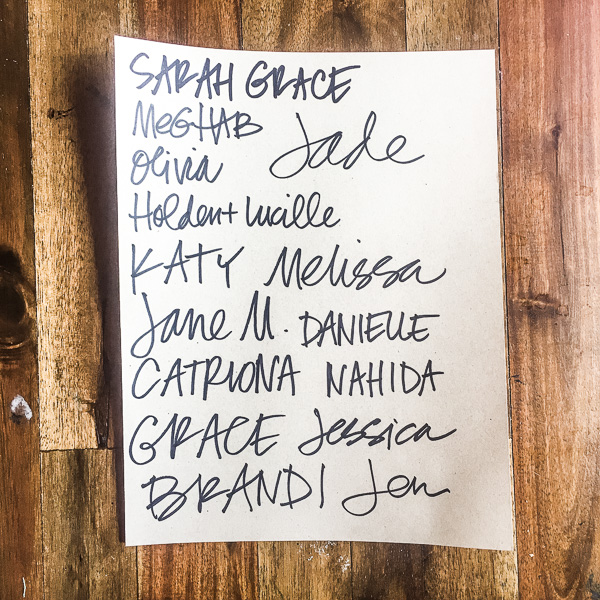 SARAH GRACE
MeGHAB
Jade
Olivia
Holden + Lucille
KATY Melissa
Jane M. DANIELLE
CATRIONA NAHIDA
GRACE Jessica
BRANDI Jen